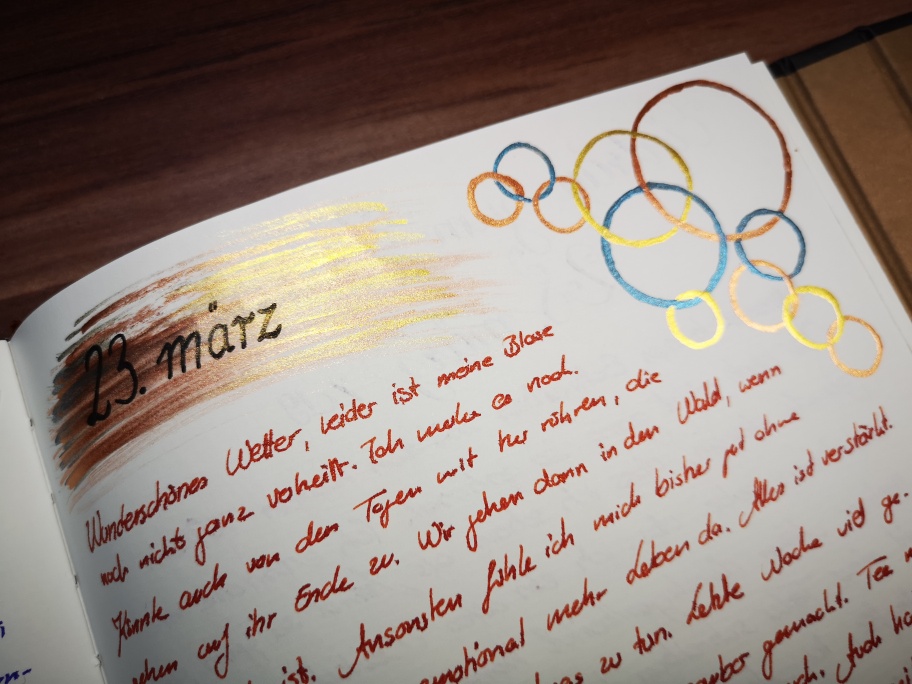 23. märz
Wunderschönes Wetter, leider ist meine Blase
noch nichts ganz verheilt. Ich merke es noch.
Könnte auch von den Tagen mit her rühren, die
gehen auf ihr Ende zu. Wir gehen dann in den Wald, wenn
ist. Ansonsten fühle ich mich bisher gut ohne
emotional mehr Leben da. Alles ist verstärkt.
was zu tun. Letzte Woche viel ge-
sauber gemacht. Tee
auch. Auch